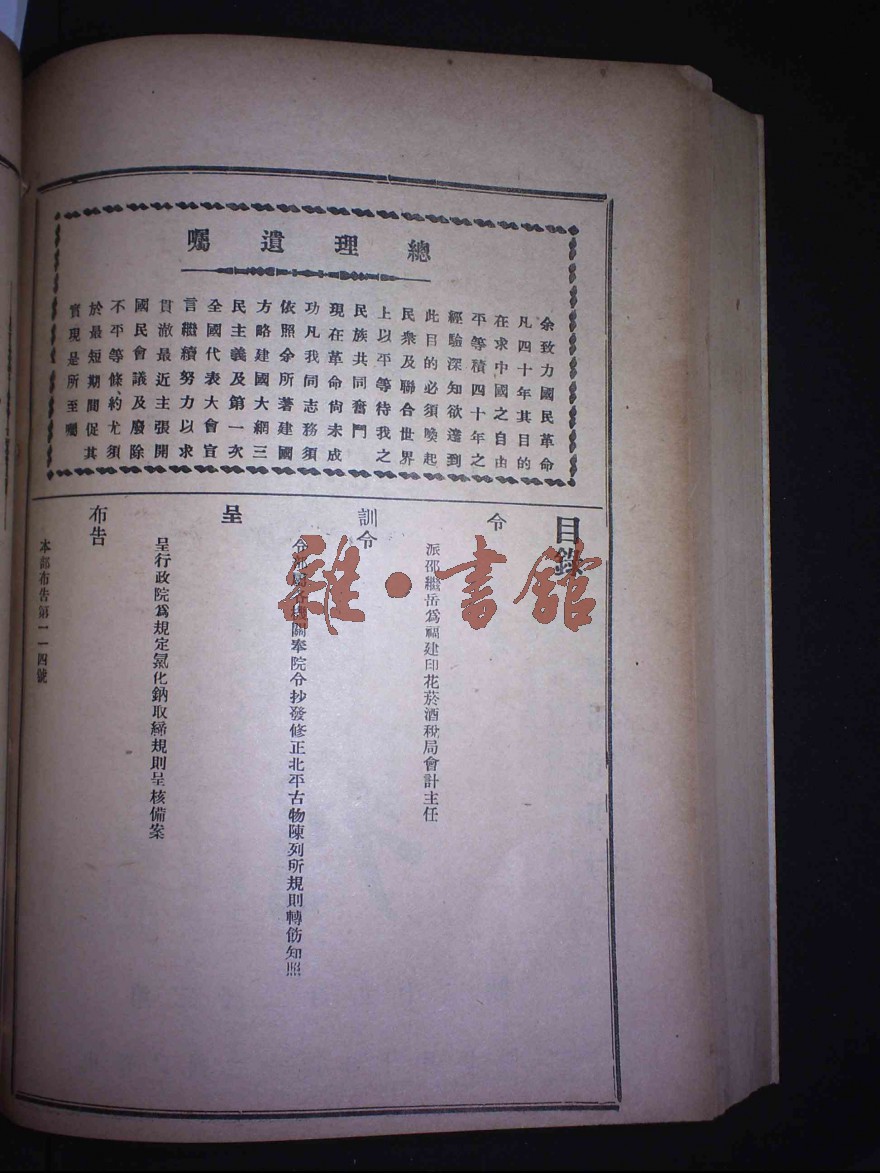 總理遺囑
余致力國民革命
凡四十年其目的
在求中國之自由
平等積四十年之
經驗深知欲達到
此目的必須喚起
民衆及聯合世界
上以平等待我之
民族共同奮鬥
現在革命尚未成
功凡我同志務須
依照余所著建國
方略建國大綱三
民主義及第一次
全國代表大會宣
言繼續努力以求
貫澈最近主張開
國民會議及廢除
不平等條約尤須
於最短期間促其
實現是所至囑
目錄
令
派邵繼岳爲福建印花菸酒稅局會計主任
訓令
令部屬各機關奉院令抄發修正北平古物陳列所規則轉飭知照
呈
呈行政院爲規定氯化鈉取締規則呈核備案
布告
本部布告第一一四號
雜·書館